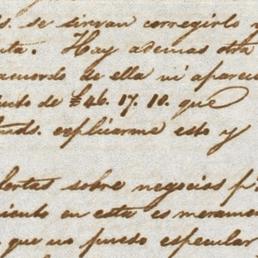 s. se sirvan corregirlo y
ta. Hay ademas otra
acuerdo de ella ni aparece
ucto de £46. 17. 10. que
uds. esplicarme esto y
ertas sobre negocios p.
iento en esta es merame
que no puedo especular